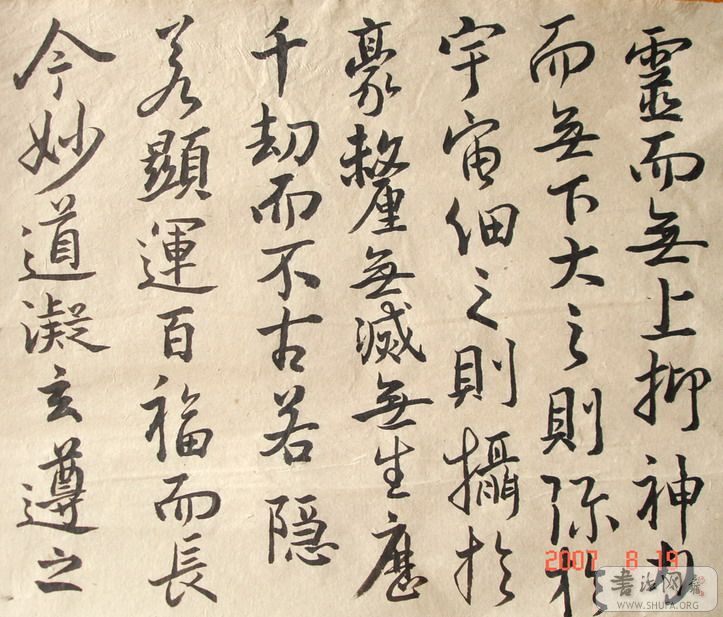 靈而無上抑神力
而無下大之則弥於
宇宙细之則攝於
豪釐無滅無生歷
千劫而不古若隐
若顯運百福而長
今妙道凝玄遵之
2007 8 19
书法网
WWW.SHUFA.ORG